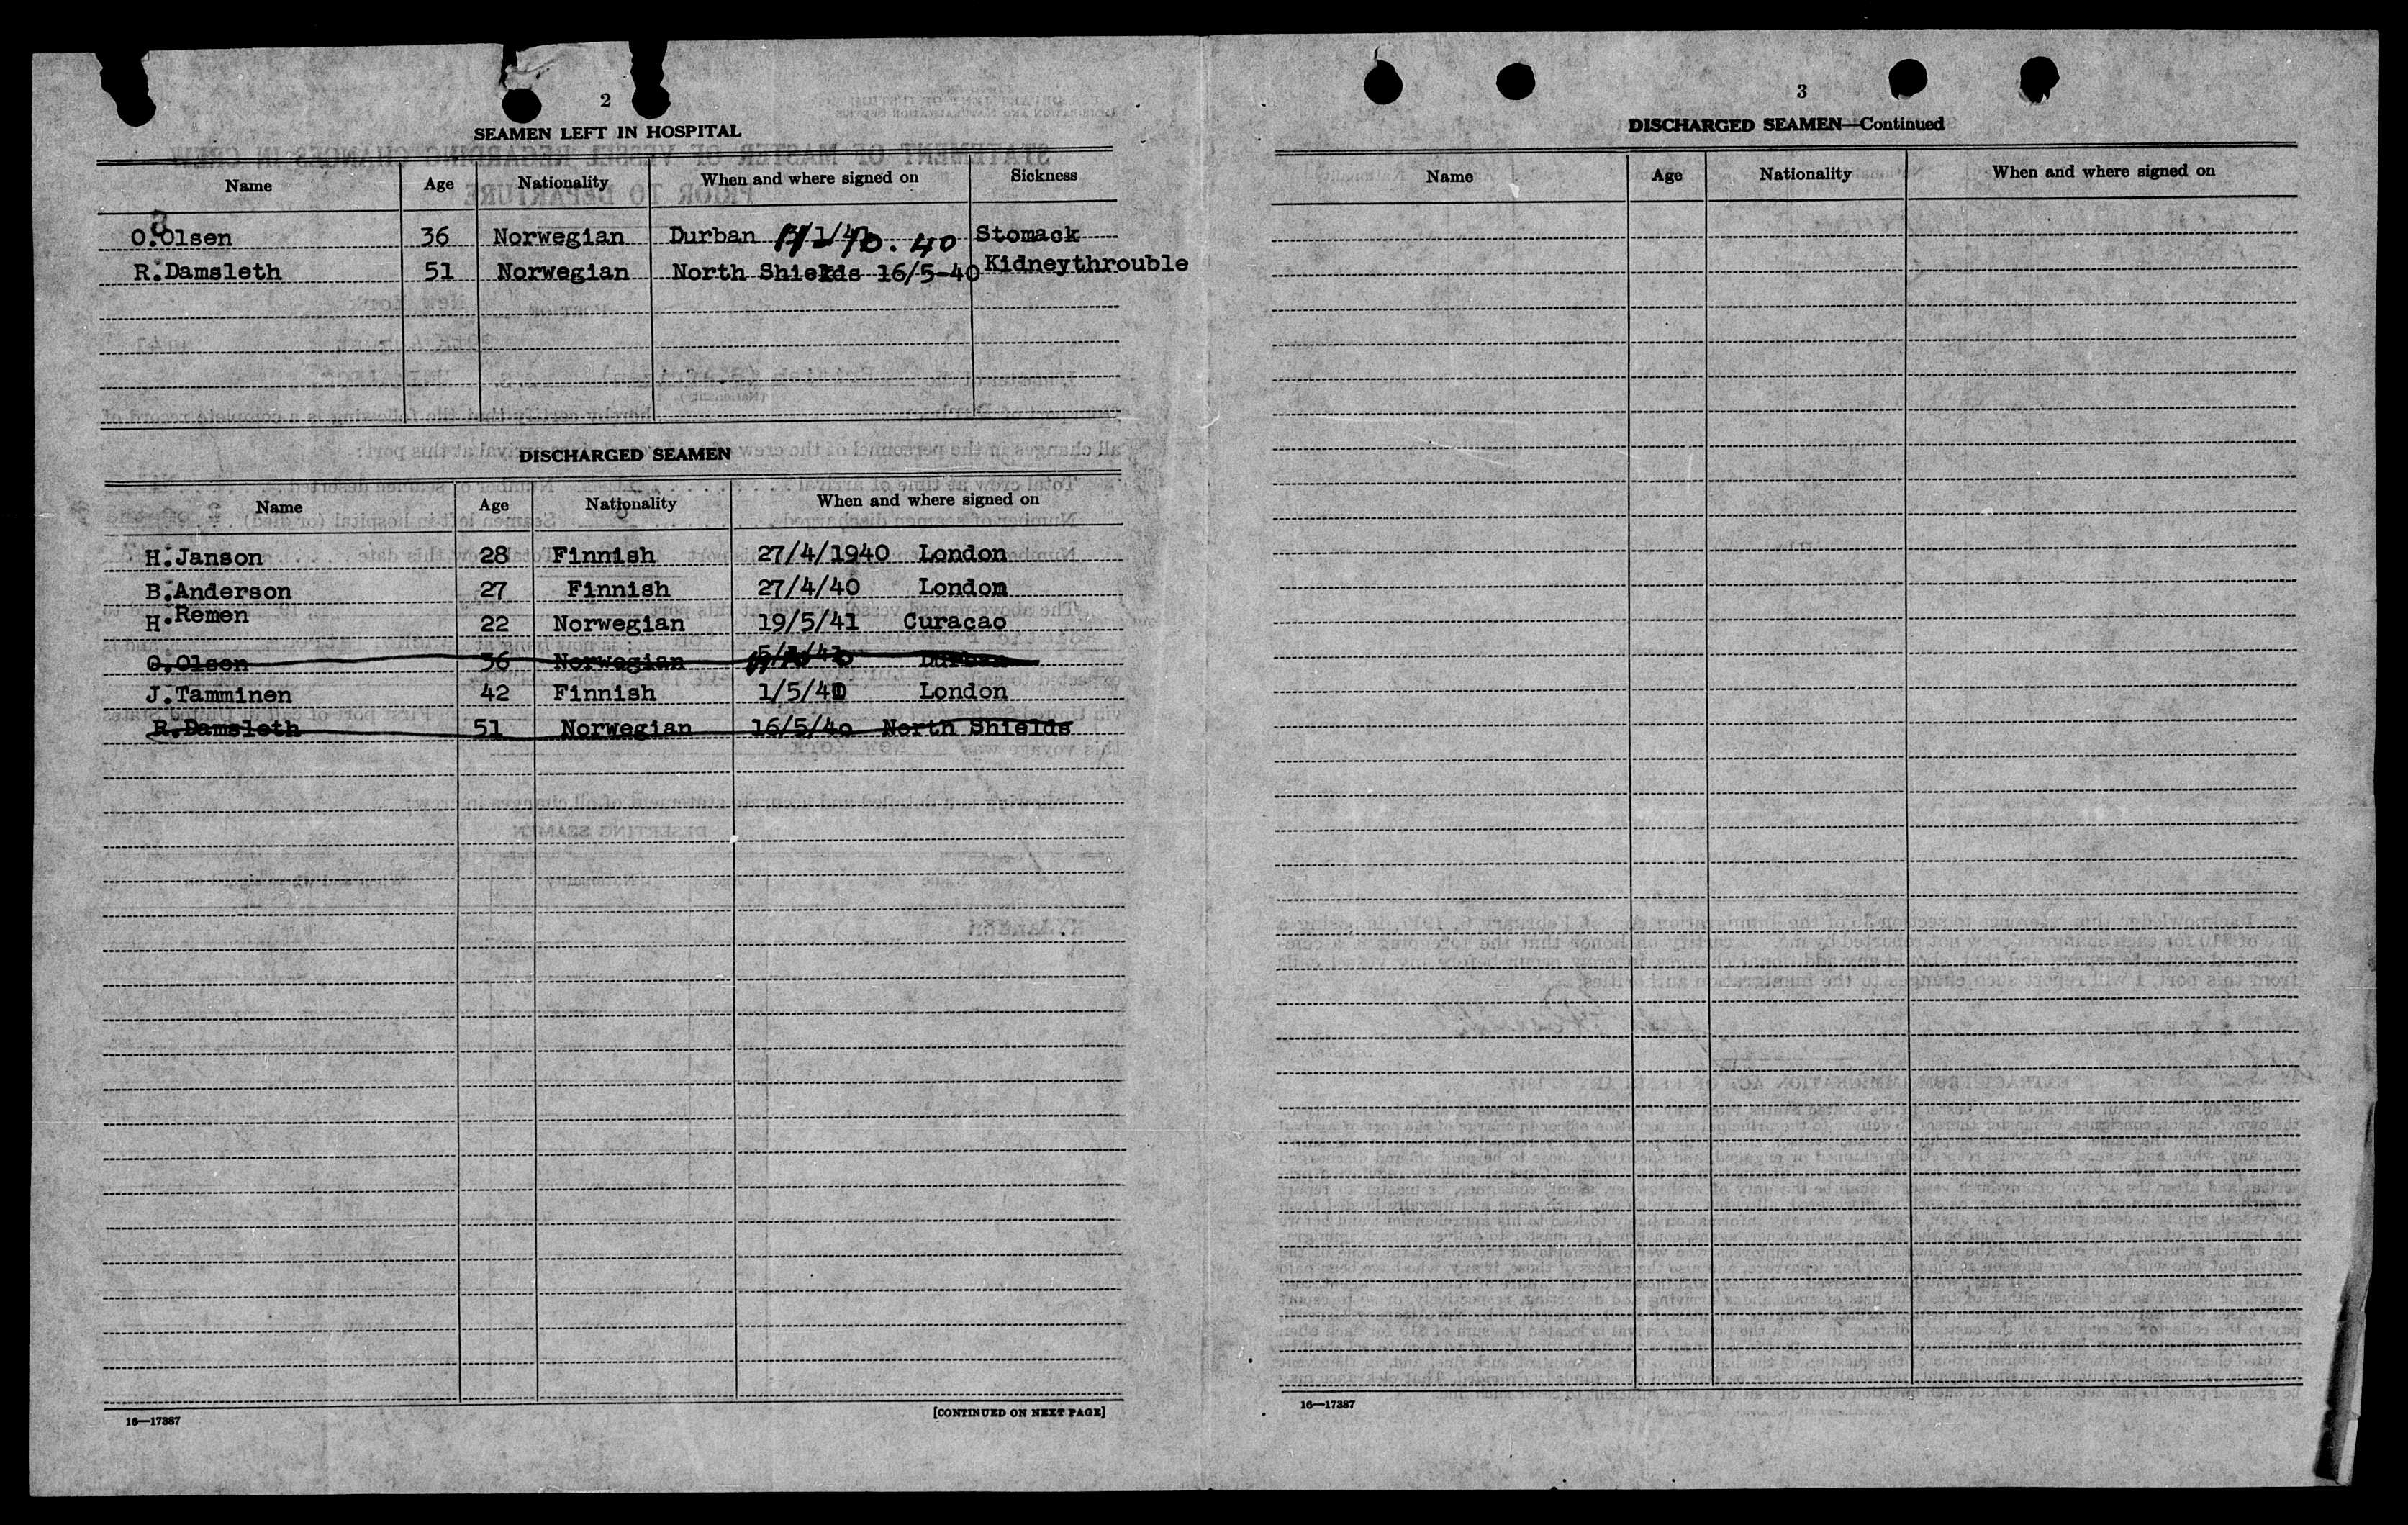 2
SEAMEN LEFT IN HOSPITAL
Name Age Nationality When and where signed on Sickness
O.Olsen 36 Norwegian Durban 40 Stomack
R.Damsleth 51 Norwegian North Shields 16/5-40 Kidneythrouble
DISCHARGED SEAMEN
Name Age Nationality When and where signed on
H.Janson 28 Finnish 27/4/1940 London
B.Anderson 27 Finnish 27/4/40 London
H.Remen 22 Norwegian 19/5/41 Curacao
O.Olsen 36 Norwegian Durban
J.Tamminen 42 Finnish 1/5/40 London
R.Damsleth 51 Norwegian 16/5/40 North Shields
16—17387
[CONTINUED ON NEXT PAGE]
3
DISCHARGED SEAMEN—Continued
Name Age Nationality When and where signed on
16—17387